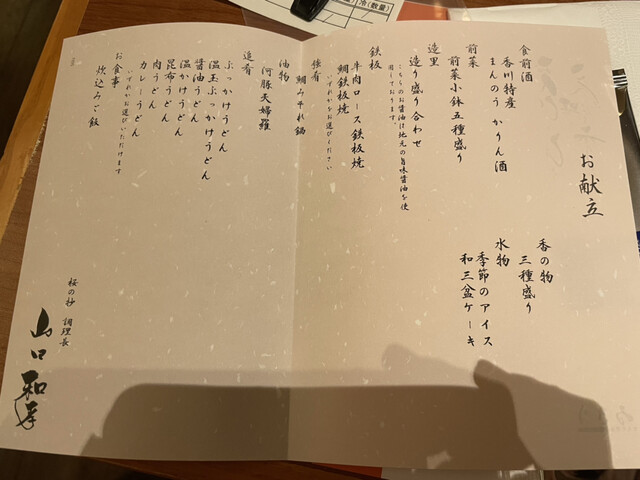 お献立
食前酒
香川特産
まんのう かりん酒
前菜
前菜小鉢五種盛り
造里
造り盛り合わせ
こちらのお醤油は地元の旨味醤油を使
用しております。
鉄板
牛肉ロース鉄板焼
鯛鉄板焼
いずれかをお選びください
強肴
鯛みぞれ鍋
油物
河豚天婦羅
追肴
ぶっかけうどん
温玉ぶっかけうどん
醤油うどん
温かけうどん
昆布うどん
肉うどん
カレーうどん
いずれかお選びいただけます
お食事
炊込みご飯
香の物
三種盛り
水物
季節のアイス
和三盆ケーキ
桜の抄 調理長
山口和孝
冷(数量)